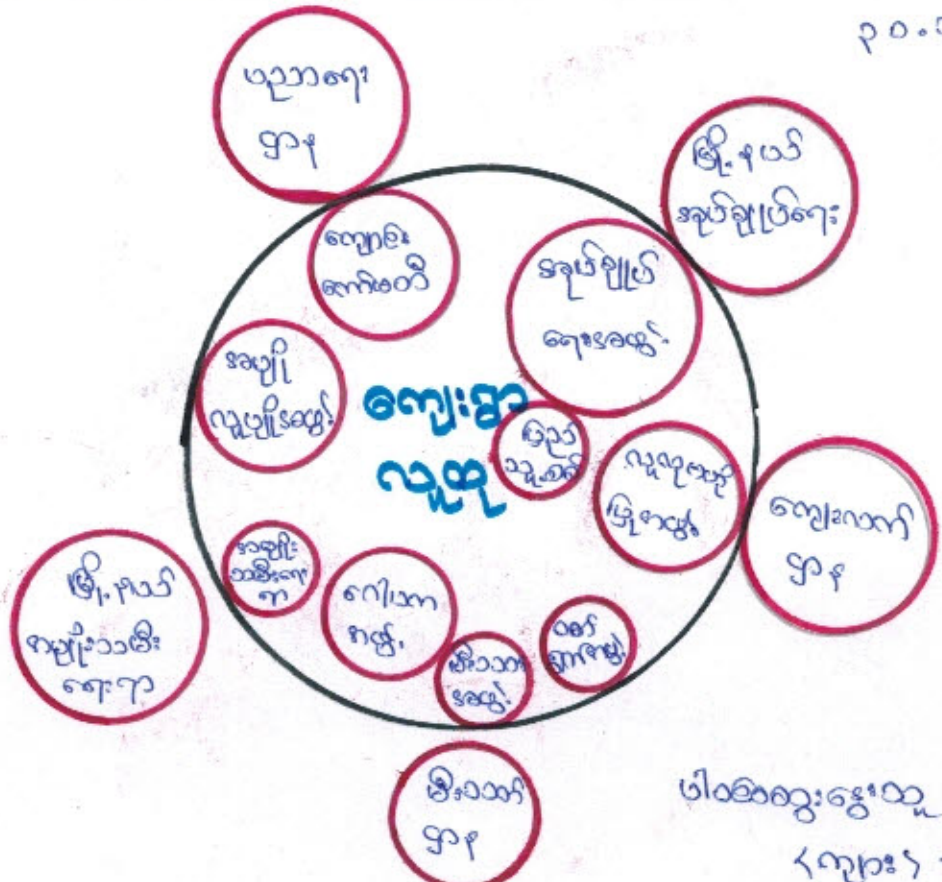 ပညာရေး
ဌာန
မြို့နယ်
အုပ်ချုပ်ရေး
ကျောင်း
ကော်မတီ
အုပ်ချုပ်
ရေးအဖွဲ့
အပျို
လူပျိုအဖွဲ့
ကျေးရွာ
လူထု
ပြည်
သူ့စစ်
ကျေးလက်
ဌာန
အမျိုး
သမီးရေး
ရာ
ဂေါပက
အဖွဲ့
မီးသတ်
အဖွဲ့
မြို့နယ်
အမျိုးသမီး
ရေးရာ
မီးသတ်
ဌာန
ပါဝင်ဆွေးနွေးသူ
(ကျား)